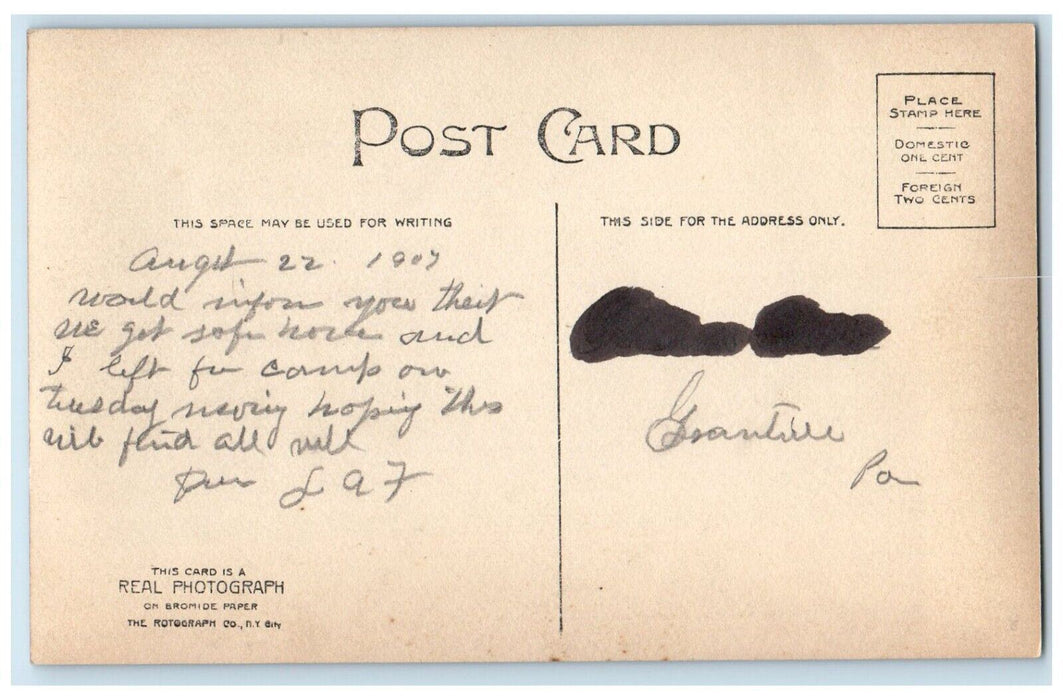 POST CARD
PLACE
STAMP HERE
DOMESTIC
ONE CENT
FOREIGN
TWO CENTS
THIS SPACE MAY BE USED FOR WRITING
Augst 22. 1907
would inform you that
we got safe home and
I left for camp on
tuesday hoping this
will find all well
L A F
THIS CARD IS A
REAL PHOTOGRAPH
ON BROMIDE PAPER
THE ROTOGRAPH CO., N.Y. City
THIS SIDE FOR THE ADDRESS ONLY.
Grantville
Pa